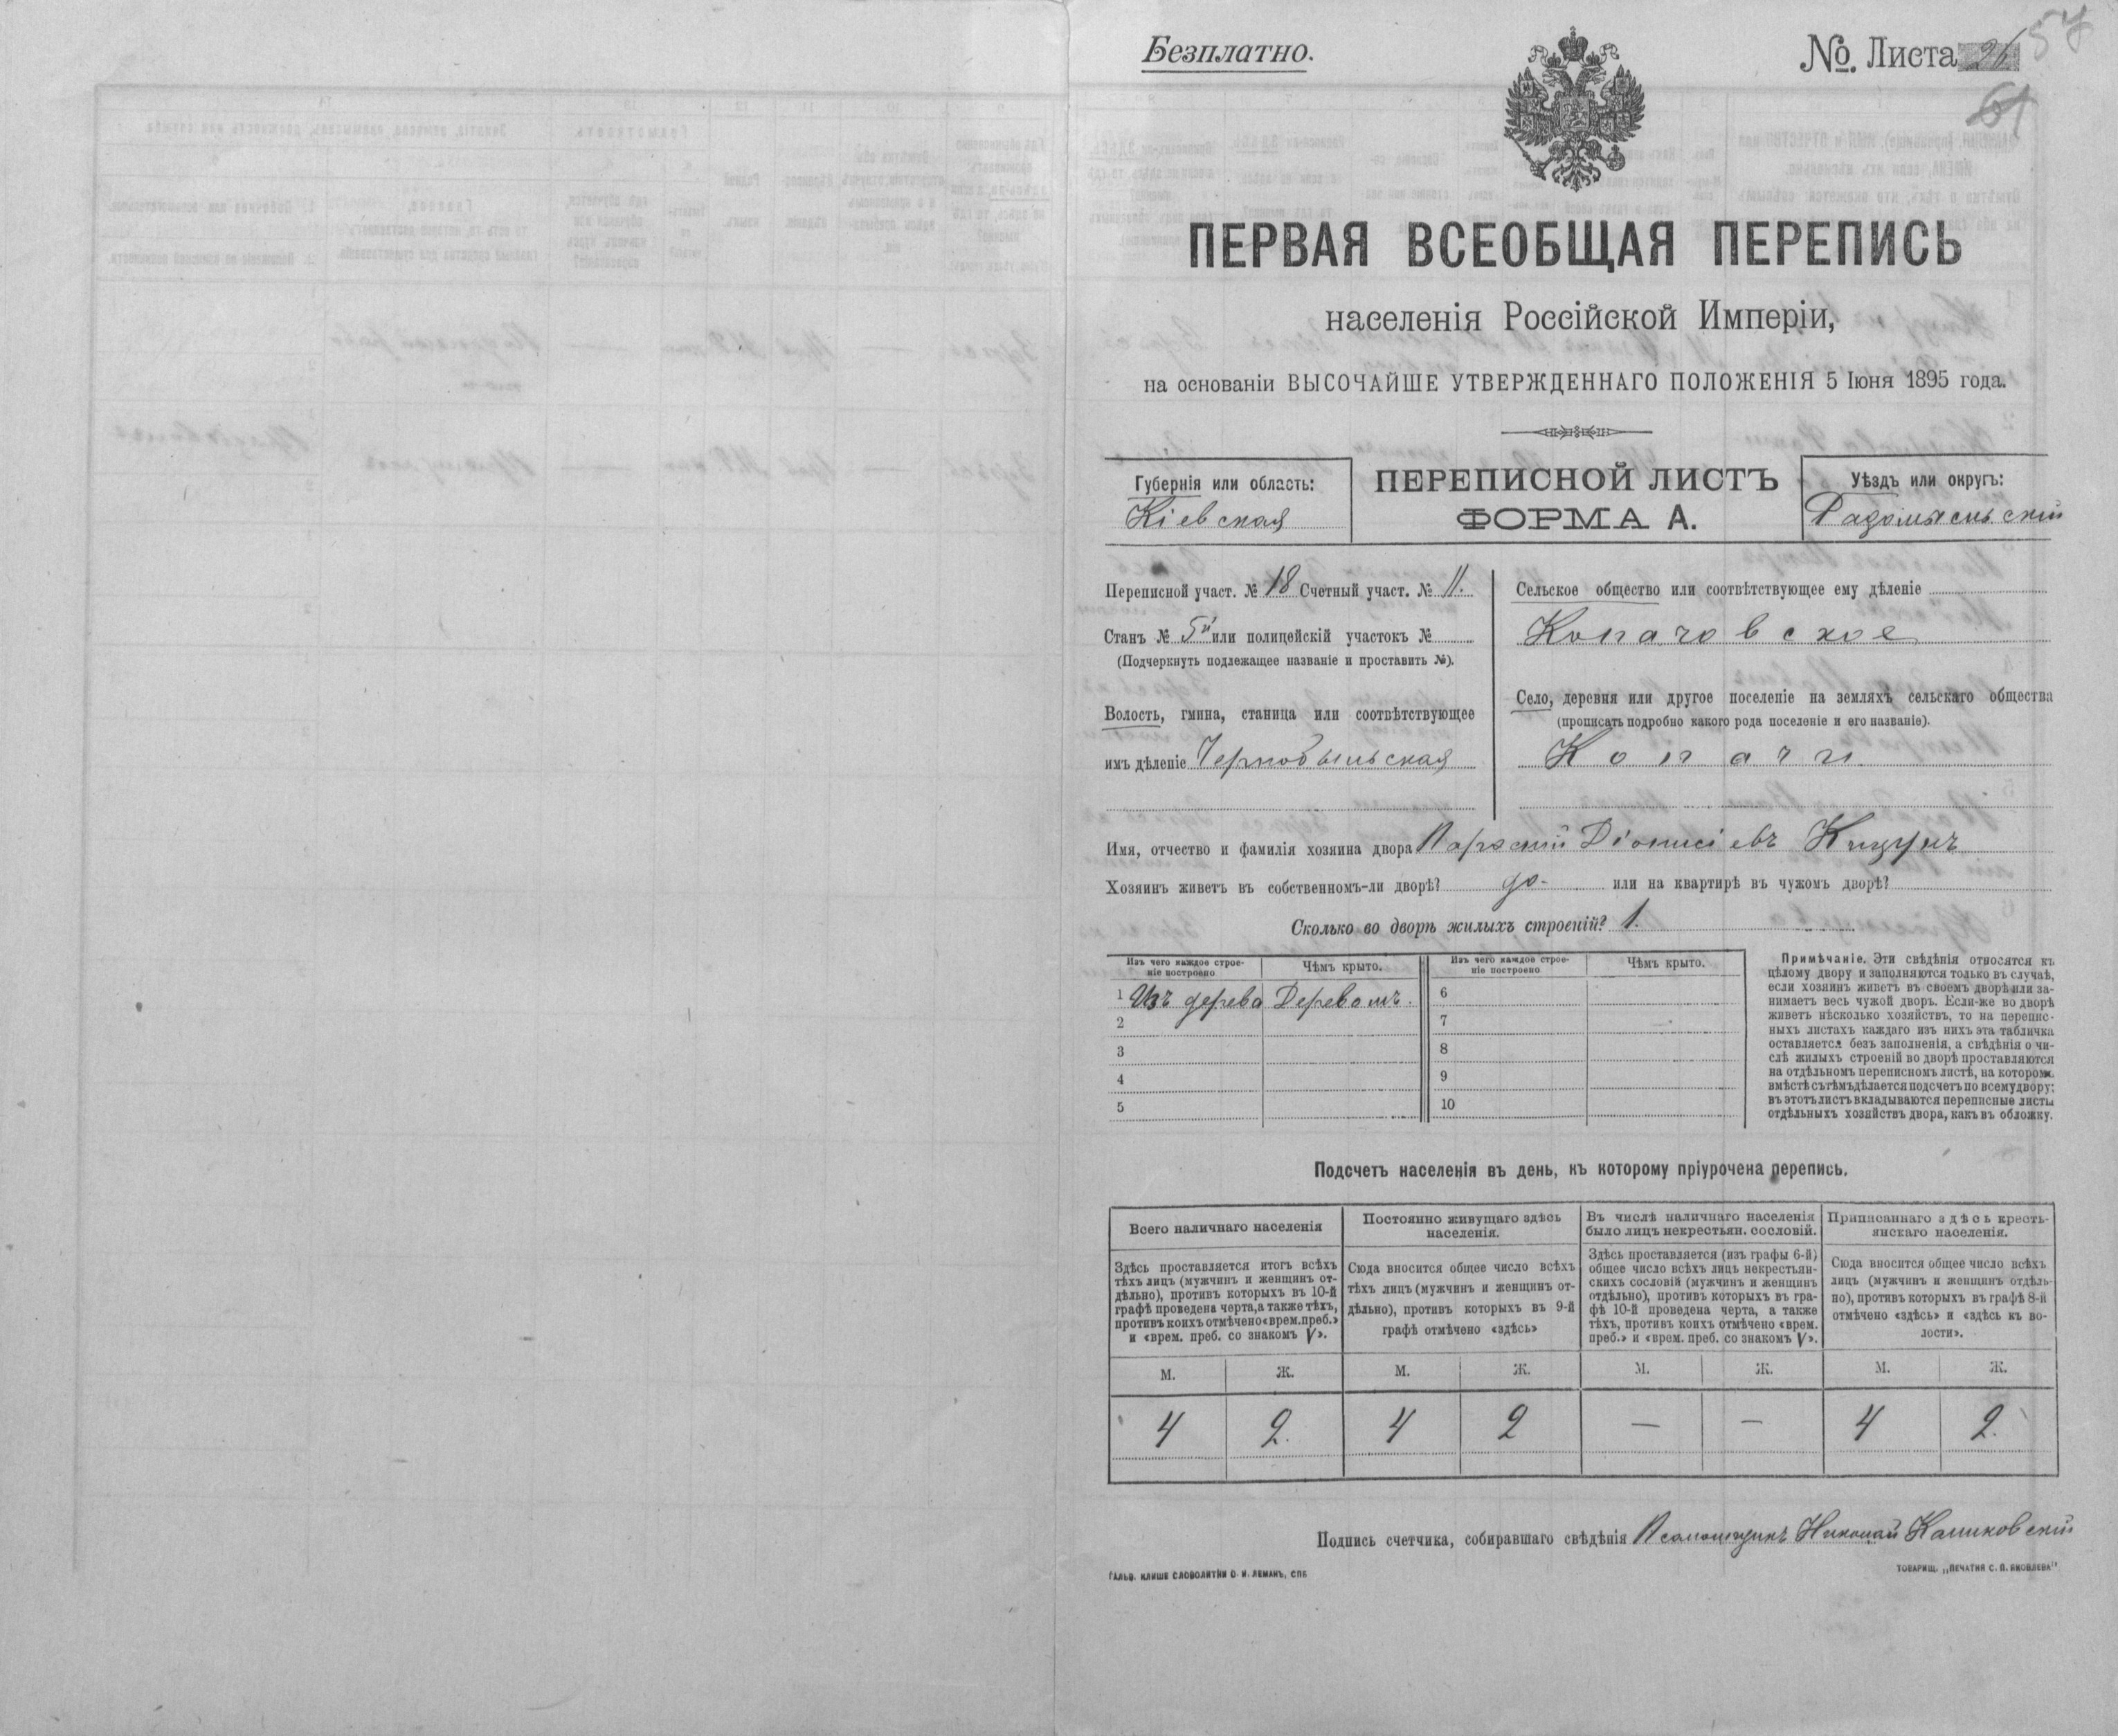 Безплатно.
№. Листа 26 57
61
ПЕРВАЯ ВСЕОБЩАЯ ПЕРЕПИСЬ
населенія Россійской Имперіи,
на основаніи ВЫСОЧАЙШЕ УТВЕРЖДЕННАГО ПОЛОЖЕНІЯ 5 Іюня 1895 года.
Губернія или область:
Кіевская
ПЕРЕПИСНОЙ ЛИСТЪ
ФОРМА А.
Уѣздъ или округъ:
Радомысльскій
Переписной участ. № 18 Счетный участ. № 11.
Станъ № 5й или полицейскій участокъ №
(Подчеркнуть подлежащее названіе и проставить №).
Волость, гмина, станица или соотвѣтствующее
имъ дѣленіе Чернобыльская
Сельское общество или соотвѣтствующее ему дѣленіе
Копачовское
Село, деревня или другое поселеніе на земляхъ сельскаго общества
(прописать подробно какого рода поселеніе и его названіе).
Копачи
Имя, отчество и фамилія хозяина двора Діонисіевъ
Хозяинъ живетъ въ собственномъ-ли дворѣ? да- или на квартирѣ въ чужомъ дворѣ?
Сколько во дворѣ жилыхъ строеній? 1.
Изъ чего каждое строе-
ніе построено
Чѣмъ крыто.
Изъ чего каждое строе-
ніе построено
Чѣмъ крыто.
1 Изъ дерева Деревомъ. 6
2 7
3 8
4 9
5 10
Примѣчаніе. Эти свѣдѣнія относятся къ
цѣлому двору и заполняются только въ случаѣ,
если хозяинъ живетъ въ своемъ дворѣ или за-
нимаетъ весь чужой дворъ. Если-же во дворѣ
живетъ нѣсколько хозяйствъ, то на перепис-
ныхъ листахъ каждаго изъ нихъ эта табличка
оставляется безъ заполненія, а свѣдѣнія о чи-
слѣ жилыхъ строеній во дворѣ проставляются
на отдѣльномъ переписномъ листѣ, на которомъ
вмѣстѣ съ тѣмъ дѣлается подсчетъ по всему двору;
въ этотъ листъ вкладываются переписные листы
отдѣльныхъ хозяйствъ двора, какъ въ обложку.
Подсчетъ населенія въ день, къ которому пріурочена перепись.
Всего наличнаго населенія
Здѣсь проставляется итогъ всѣхъ
тѣхъ лицъ (мужчинъ и женщинъ от-
дѣльно), противъ которыхъ въ 10-й
графѣ проведена черта, а также тѣхъ,
противъ коихъ отмѣчено «врем. преб.»
и «врем. преб. со знакомъ V».
Постоянно живущаго здѣсь
населенія.
Сюда вносится общее число всѣхъ
тѣхъ лицъ (мужчинъ и женщинъ от-
дѣльно), противъ которыхъ въ 9-й
графѣ отмѣчено «здѣсь»
Въ числѣ наличнаго населенія
было лицъ некрестьян. сословій.
Здѣсь проставляется (изъ графы 6-й)
общее число всѣхъ лицъ некрестьян-
скихъ сословій (мужчинъ и женщинъ
отдѣльно), противъ которыхъ въ гра-
фѣ 10-й проведена черта, а также
тѣхъ, противъ коихъ отмѣчено «врем.
преб.» и «врем. преб. со знакомъ V».
Приписаннаго здѣсь кресть-
янскаго населенія.
Сюда вносится общее число всѣхъ
лицъ (мужчинъ и женщинъ отдѣль-
но), противъ которыхъ въ графѣ 8-й
отмѣчено «здѣсь» и «здѣсь къ во-
лости».
М. Ж. М. Ж. М. Ж. М. Ж.
4 2. 4 2 — — 4 2.
Подпись счетчика, собиравшаго свѣдѣнія Псаломщикъ Николай
ГАЛЬВ. КЛИШЕ СЛОВОЛИТНИ О. И. ЛЕМАНЪ, СПБ
ТОВАРИЩ. „ПЕЧАТНЯ С. П. ЯКОВЛЕВА"